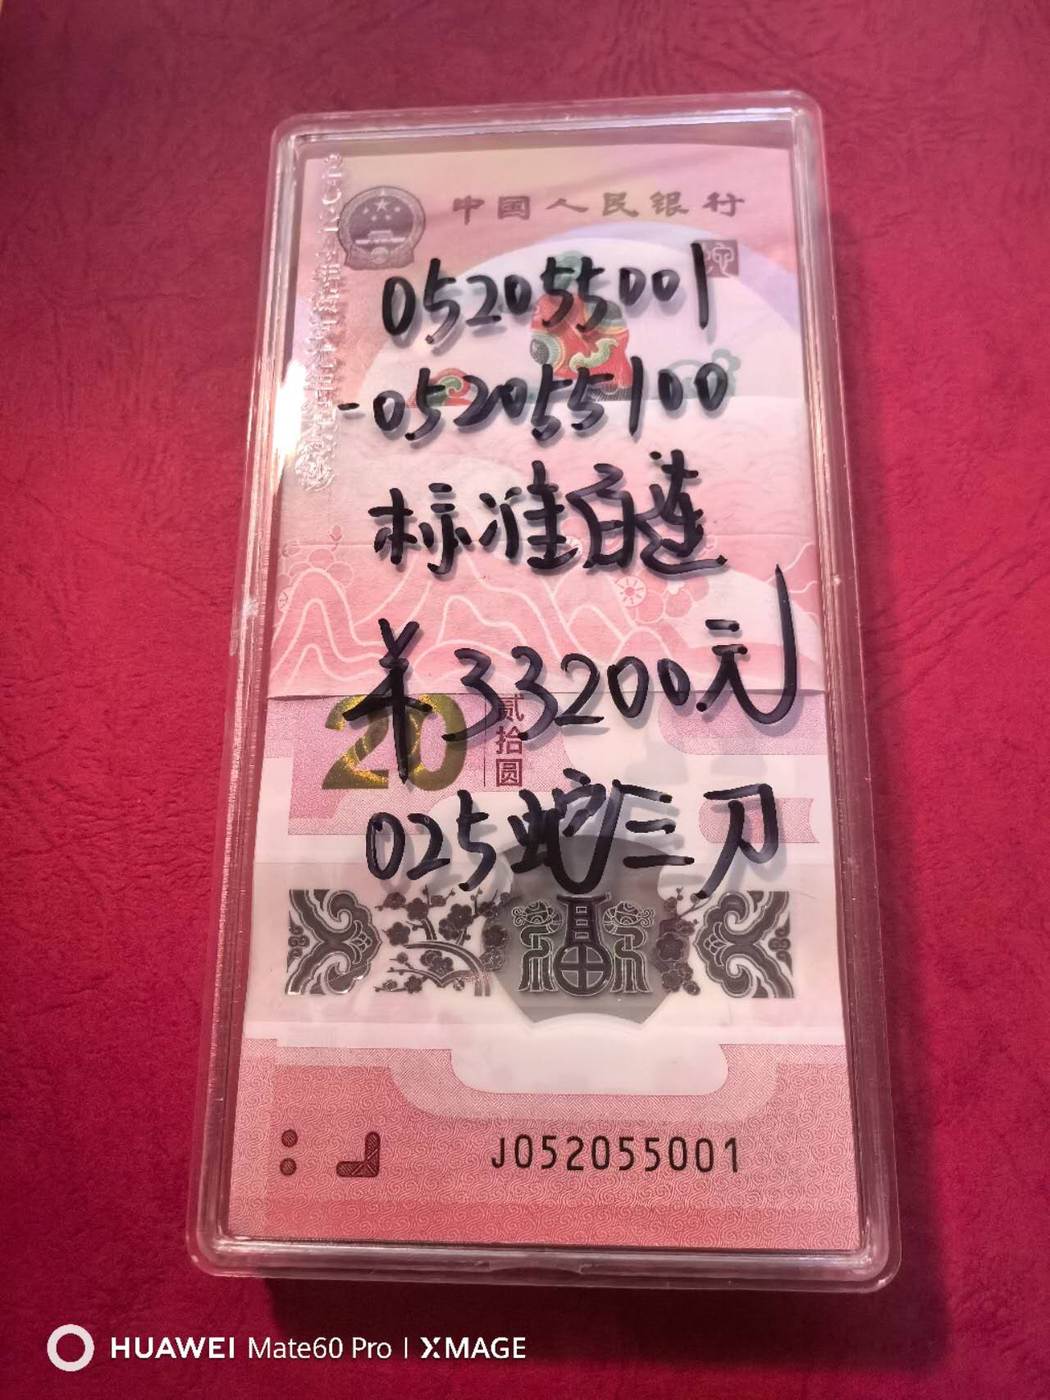 中国人民银行
052055001
-052055100
标准百连
¥33200元
20 贰拾圆
025蛇三刀
J052055001
HUAWEI Mate60 Pro | XMAGE